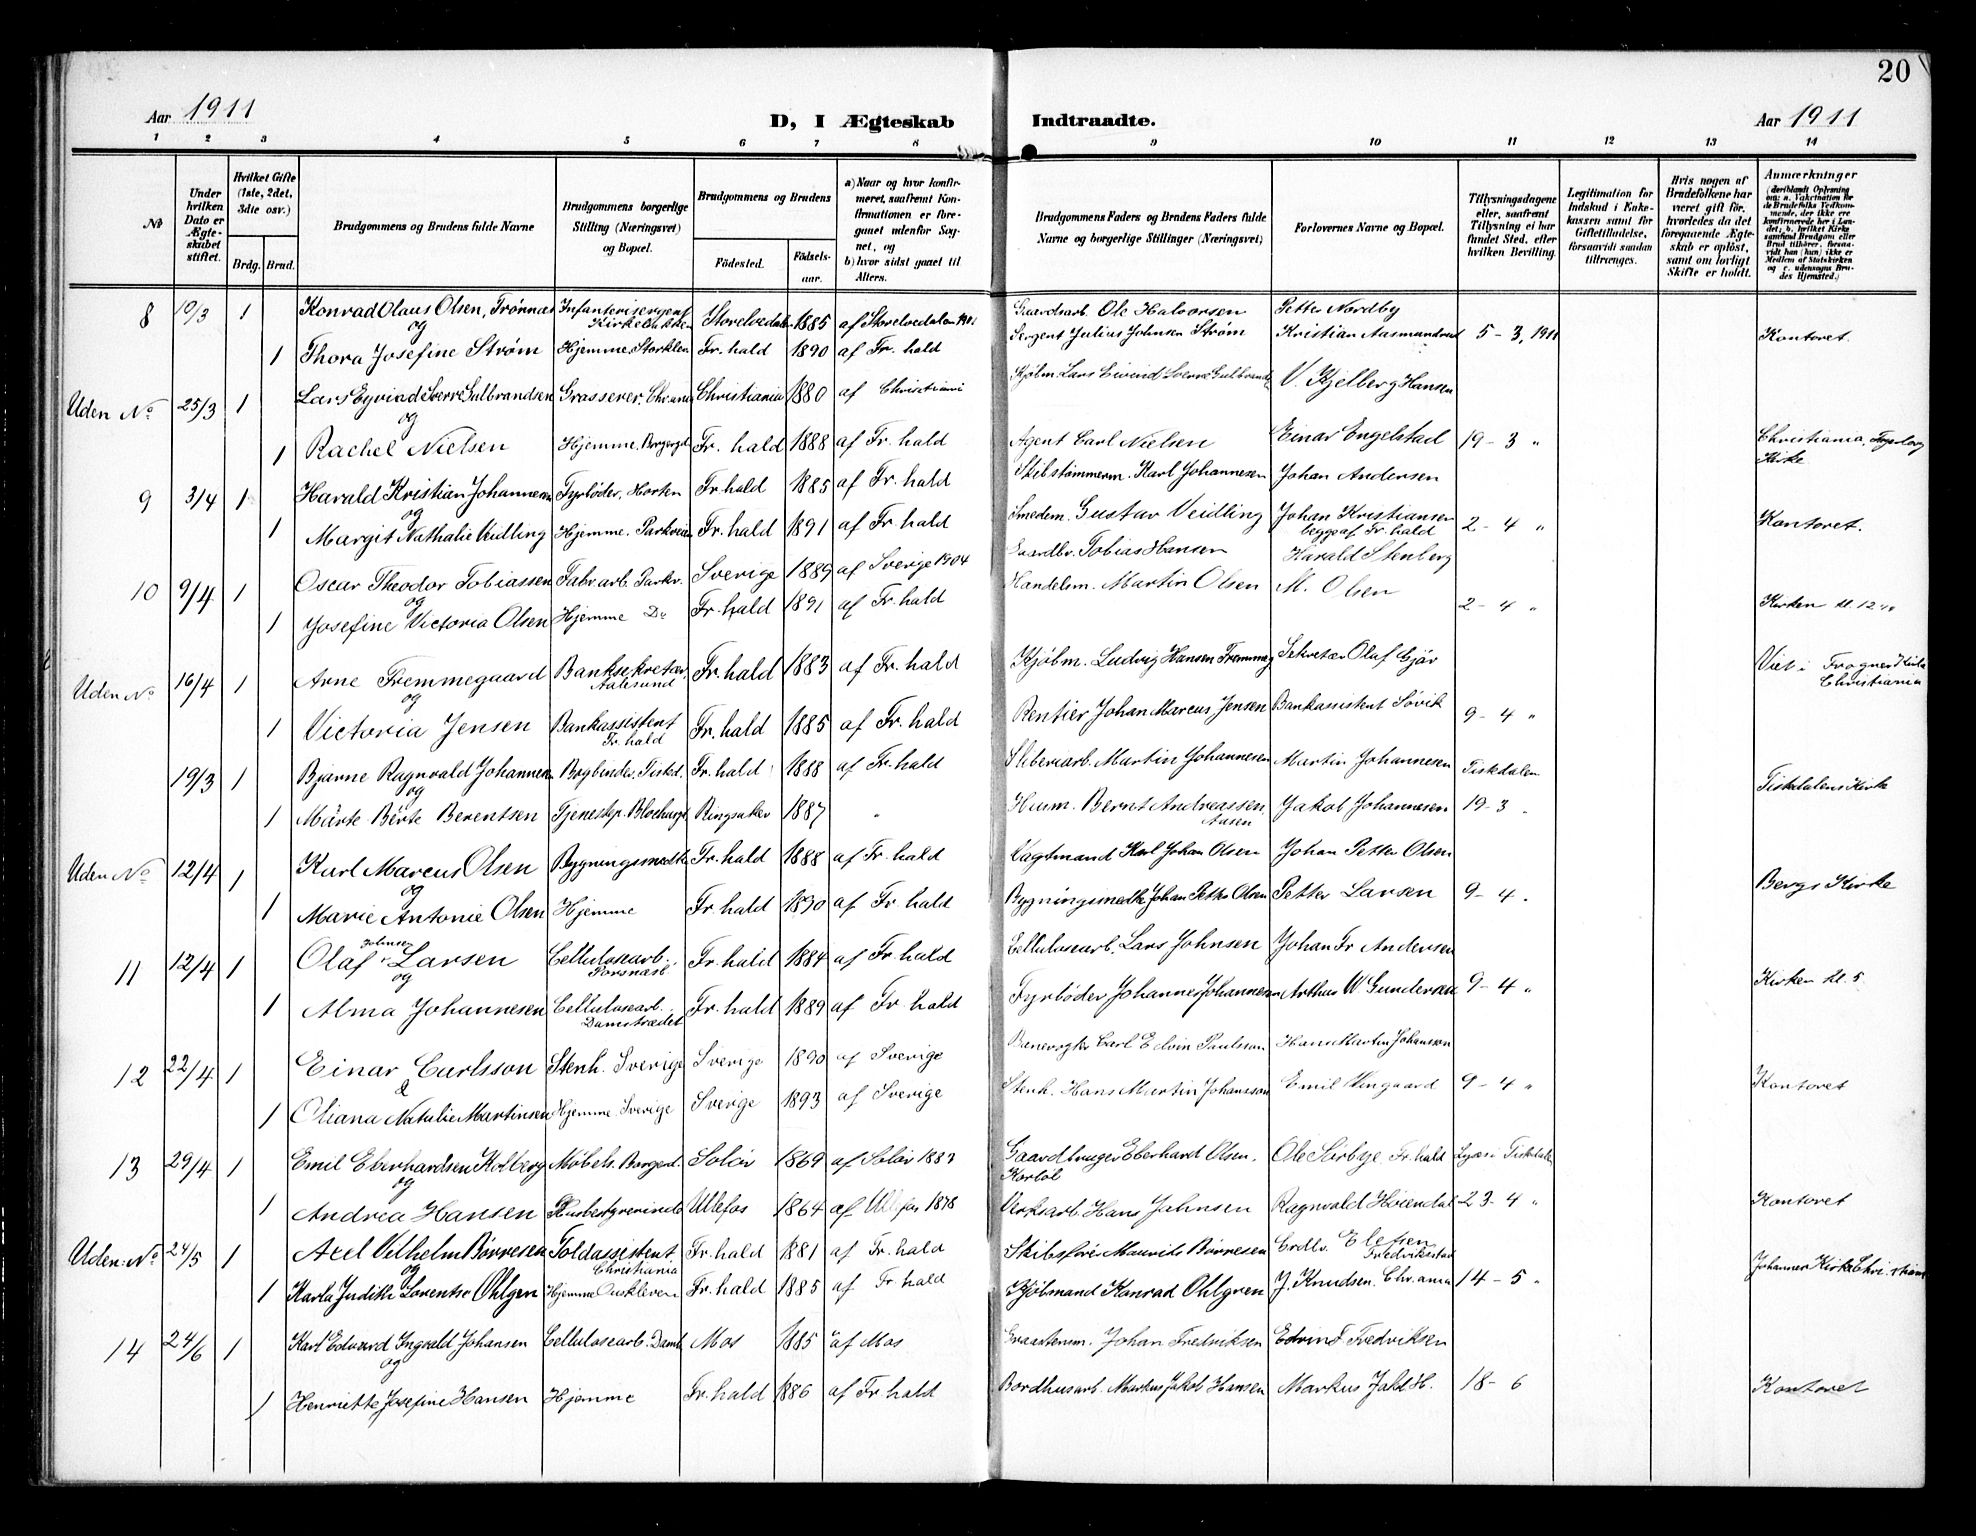 20
Aar 1911
D, I Ægteskab Indtraadte.
Aar 1911
1 2 3 4 5 6 7 8 9 10 11 12 13 14
№
Under hvilken Dato er Ægteskabet stiftet.
Hvilket Gifte (1ste, 2det, 3die osv.)
Brdg. Brud.
Brudgommens og Brudens fulde Navne
Brudgommens borgerlige Stilling (Næringsvei) og Bopæl.
Brudgommens og Brudens
Fødested. Fødselsaar.
a) Naar og hvor konfirmeret, saafremt Konfirmationen er foregaaet udenfor Sognet, og
b) hvor sidst gaaet til Alters.
Brudgommens Faders og Brudens Faders fulde Navne og borgerlige Stillinger (Næringsvei)
Forlovernes Navne og Bopæl.
Tillysningsdagene eller, saafremt Tillysning ei har fundet Sted, efter hvilken Bevilling.
Legitimation for Indskud i Enkekassen samt for Giftetilladelse, forsaavidt saadan tiltrænges.
Hvis nogen af Brudefolkene har været gift før, hvorledes da det foregaaende Ægteskab er opløst, samt om lovligt Skifte er holdt.
Anmærkninger
8 10/3 1 Konrad Olaus Olsen, Trønnes Infanterisergent Storelvedalen 1885 af Storelvedalen 1901 Gaardsarb. Ole Halvorsen Petter Nordby
og
1 Thora Josefine Strøm Hjemme, Storklen Fr. hald 1890 af Fr. hald Sergent Julius Johnsen Strøm Kristian Aasmundrud 5-3, 1911 Kontoret.
Uden No 25/3 1 Lars Eyvind Sverre Gulbrandsen Grasserer, Chr.ania Christiania 1880 af Christiania Kjøbm. Lars Eivind Sverre Gulbrands V. Kjelberg Hansen
og
1 Rachel Nielsen Hjemme, Borgergd. Fr. hald 1888 af Fr. hald Agent Carl Nielsen Einar Engelstad 19-3 " Christiania, Kirke
9 3/4 1 Harald Kristian Johannesen Fyrbøder, Horten Fr. hald 1885 af Fr. hald Skibstømmerm. Karl Johannesen Johan Andersen
og
1 Margit Nathalie Veidling Hjemme, Parkveien Fr. hald 1891 af Fr. hald Smedem. Gustav Veidling Johan Kristiansen begge af Fr. hald 2-4 " Kontoret.
10 9/4 1 Oscar Theodor Tobiassen Fabr.arb. Parkv. Sverige 1889 af Sverige 1904 Gaardbr. Tobias Hansen Harald Stenberg
og
1 Josefine Victoria Olsen Hjemme Do Fr. hald 1891 af Fr. hald Handelsm. Martin Olsen M. Olsen 2-4 " Kirken kl. 12
Uden No 16/4 1 Arne Fremmegaard Banksekretær Aalesund Fr. hald 1883 af Fr. hald Kjøbm. Ludvig Hansen Fremmeg Sekretær Olaf Gjør Viet i Frogner Kirke Christiania
og
1 Victoria Jensen Bankassistent Fr. hald Fr. hald 1885 af Fr. hald Rentier Johan Marcus Jensen Bankassistent Søvik 9-4 "
19/3 1 Bjarne Ragnvald Johannesen Bogbinder, Tiskd. Fr. hald 1888 af Fr. hald Sliberiarb. Martin Johannesen Martin Johannesen Tiskdalen
og
1 Märte Berte Berentsen Tjenestep. Ringsaker 1887 " Husm. Bernt Andreassen Aasen Jakob Johannesen 19-3 " Tiskdalens Kirke
Uden No 12/4 1 Karl Marcus Olsen Bygningssmedk Fr. hald 1888 af Fr. hald Vagtmand Karl Johan Olsen Johan Petter Olsen
og
1 Marie Antonie Olsen Hjemme Fr. hald 1890 af Fr. hald Bygningssmedk Johan Petter Olsen Petter Larsen 9-4 " Bergs Kirke
11 12/4 1 Olaf Johnsen Larsen Cellulosearb. Porsnæs Fr. hald 1884 af Fr. hald Cellulosearb. Lars Johnsen Johan Fr. Andersen
og
1 Alma Johannesen Cellulosearb. Damstrædet Fr. hald 1889 af Fr. hald Fyrbøder Johannes Johannesen Arthur W. Gundersen 9-4 " Kirken kl. 5
12 22/4 1 Einar Carlsson Stenh. Sverige Sverige 1890 af Sverige Banevogter Carl Edvin Paulsson Hans Martin Johansson
&
1 Oliana Natalie Martinsen Hjemme, Sverige Sverige 1893 af Sverige Stenh. Hans Martin Johansson Emil Vingaard 9-4 " Kontoret
13 29/4 1 Emil Eberhardsen Kolberg Møbels. Borgerd. Solør 1869 af Solør 1883 Gaardbruger Eberhard Olsen. Ole Sørbye Fr. hald Lyses i Tiskdalen
og
1 Andrea Hansen Husbestyrerinde Ullefos 1864 af Ullefos 1878 Verksarb. Hans Johnsen Ragnvald Høiendal 23-4 " Kontoret
Uden: No 24/5 1 Axel Vilhelm Børresen Toldassistent Christiania Fr. hald 1881 af Fr. hald Skibsfører Maurits Børresen Fredriksstad
og
1 Karla Judith Lorentse Ohlgren Hjemme Fr. hald 1885 af Fr. hald Kjøbmand Konrad Ohlgren J. Knudsen, Chr.ania 14-5 " Johannes Kirke Christiania
14 24/6 1 Karl Edvard Ingvald Johansen Cellulosearb. Damst Mos 1885 af Mos Johan Fredriksen Edvin F Fredriksen
og
1 Henriette Josefine Hansen Hjemme Fr. hald 1886 af Fr. hald Bordhusarb. Markus Jakob Hansen Markus Jakb H. 18-6 Kontoret